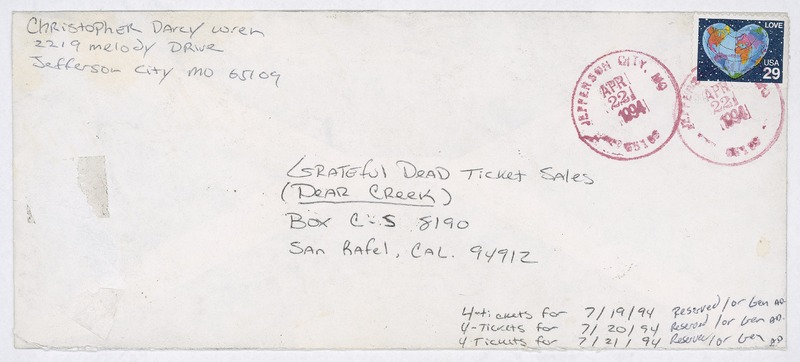 Christopher Darcy Wren
2219 Melody Drive
Jefferson City MO 65109
LOVE
USA
29
JEFFERSON CITY, MO
APR
22
1994
Grateful Dead Ticket Sales
(Dear Creek)
Box C-S 8190
San Rafel, CAL. 94912
4-tickets for 7/19/94 Reserved/or Gen AD.
4-Tickets for 7/20/94 Reserved/or Gen AD.
4 Tickets for 7/21/94 Reserved/or Gen AD